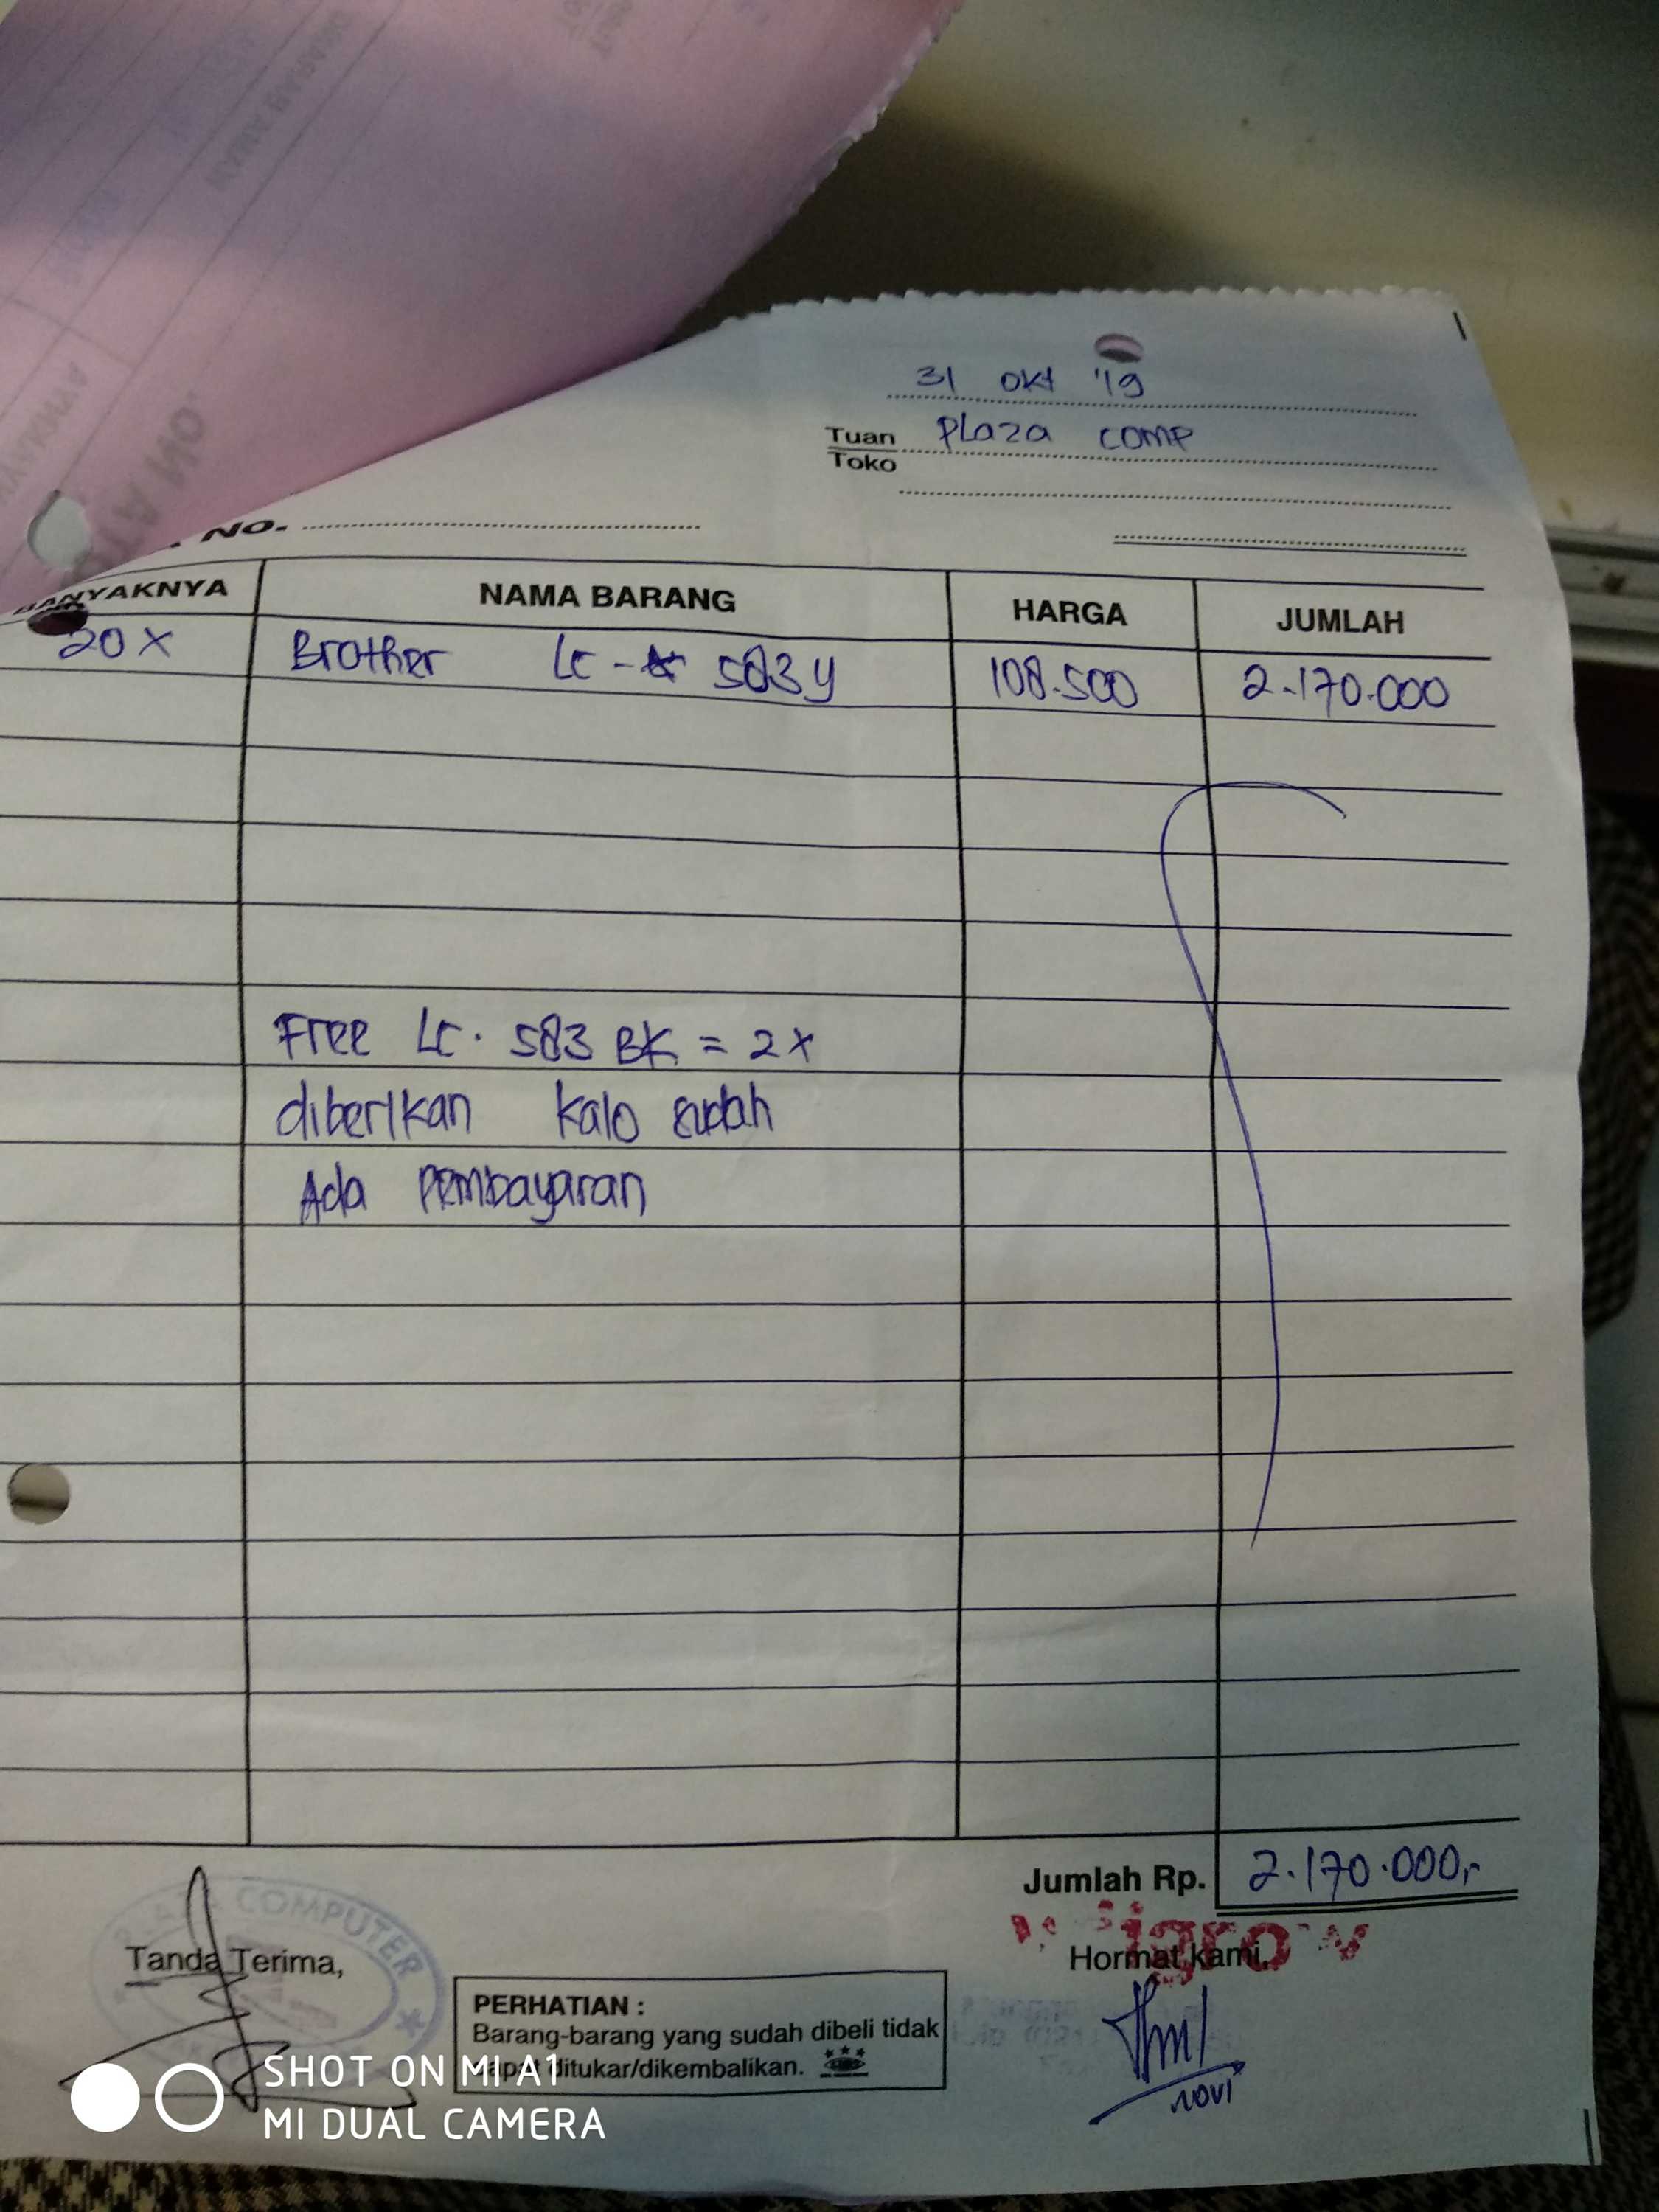 31 Okt '19
Tuan Plaza comp
Toko
NO.
BANYAKNYA NAMA BARANG HARGA JUMLAH
20 x Brother LC - 583 y 108.500 2.170.000
Free LC. 583 BK = 2x
diberikan kalo sudah
Ada Pembayaran
Jumlah Rp. 2.170.000,-
COMPUTER
Tanda Terima,
Hormat kami,
PERHATIAN :
Barang-barang yang sudah dibeli tidak
dapat ditukar/dikembalikan.
novi
SHOT ON MI A1
MI DUAL CAMERA